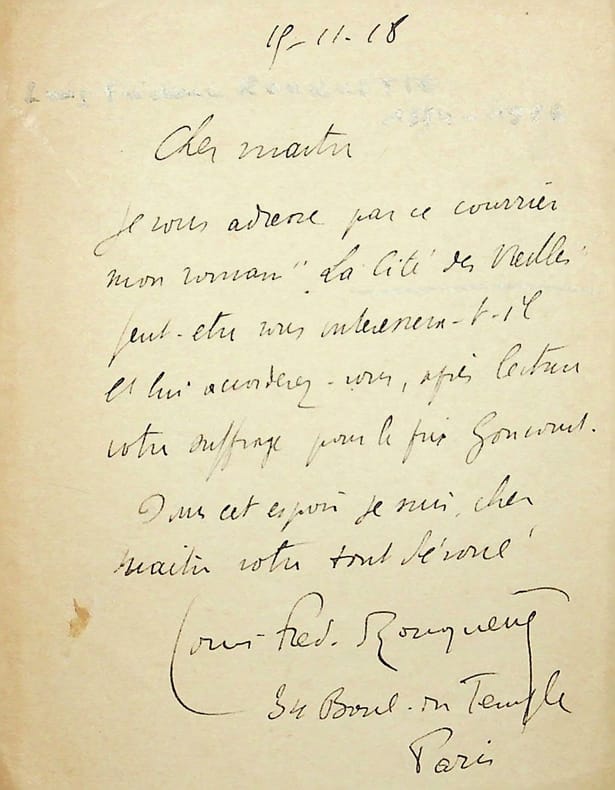 15-11-18
Cher maitre
Je vous adresse par ce courrier
mon roman "La Cité des Vieilles"
peut-etre vous interessera-t-il
et lui accorderez-vous, après lecture
votre suffrage pour le prix Goncourt.
Dans cet espoir je suis, cher
maitre votre tout dévoué
Louis-Fred. Rouquette
34 Boul. du Temple
Paris